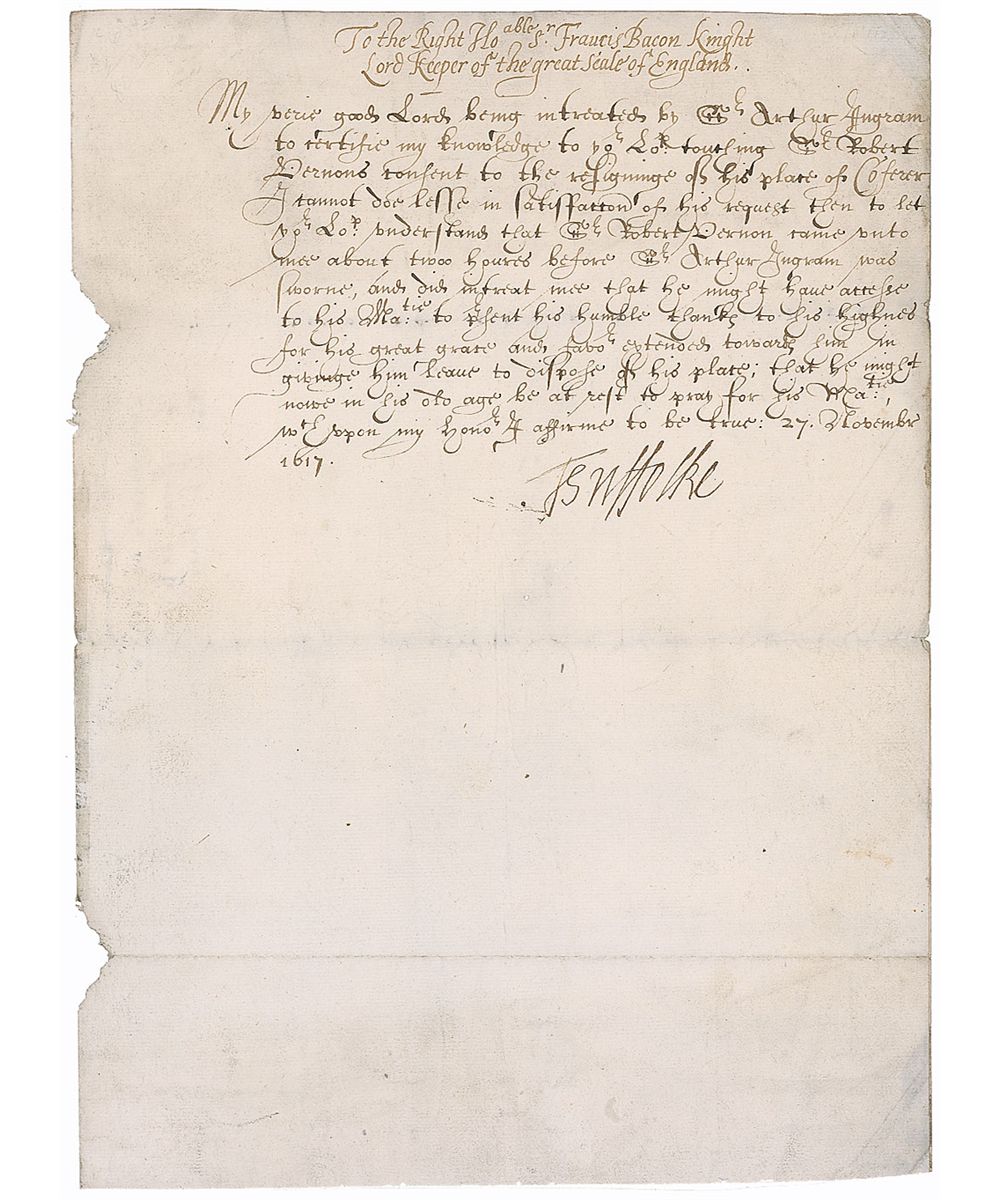 To the Right Ho^able S^r. Francis Bacon Knight
Lord Keeper of the great Seale of England..
My verie good Lord being intreated by S^r Arthur Ingram
to certifie my knowledge to yo^r Lo^p. touching S^r Robert
Vernons consent to the resigninge of his place of Coferer
I cannot doe lesse in satisfaccon of his request then to let
yo^r Lo^p. vnderstand that S^r Robert Vernon came vnto
mee about twoo houres before S^r Arthur Ingram was
sworne, and did intreat mee that he might have accesse
to his Ma:^tie to p̃sent his humble thanks to his highnes
for his great grace and favo^r extended towards him in
givinge him leave to dispose of his place; that he might
nowe in his old age be at rest to pray for his Ma:^tie,
w^ch vpon my hono^r I affirme to be true: 27. Novembr
1617.
TSuffolke